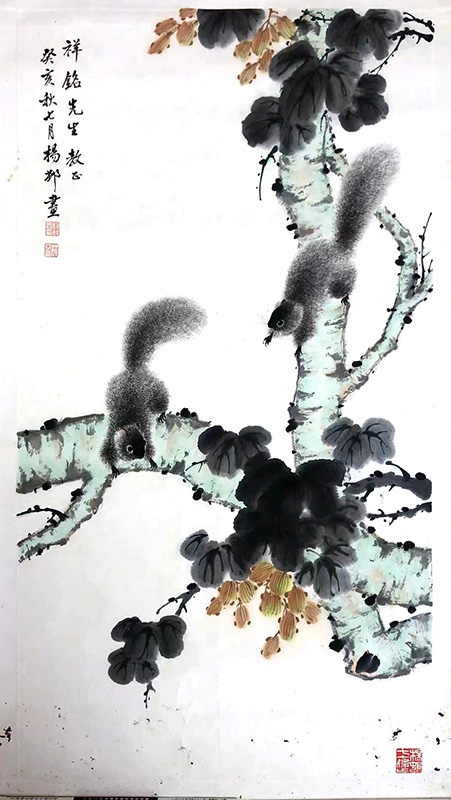 祥銘先生教正
癸亥秋七月楊邨畫